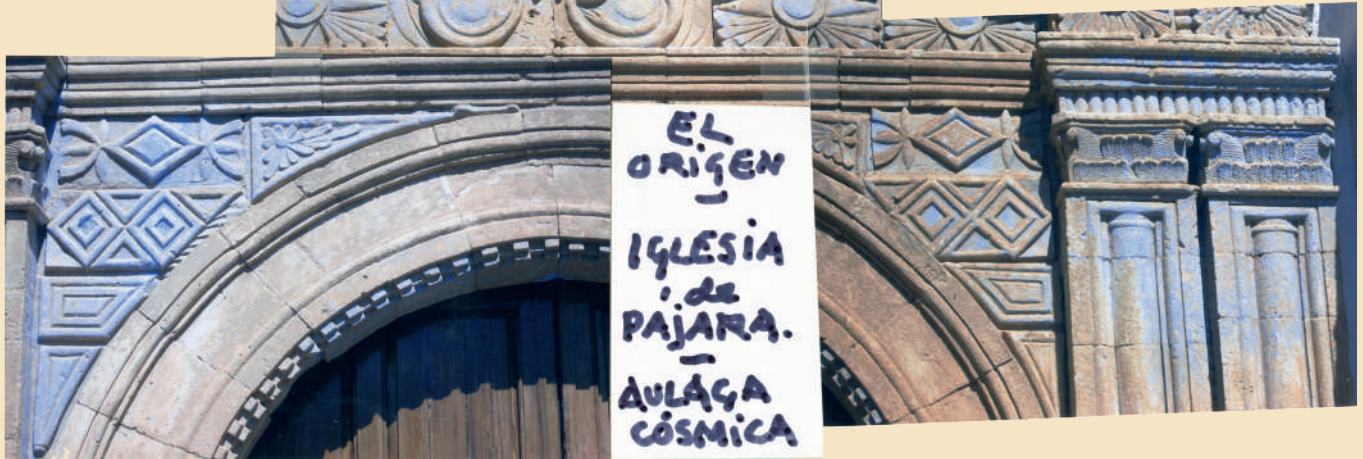 EL
ORiGEN
–
IGLESiA
de
PAJARA.
–
AULAGA
CÓSMiCA